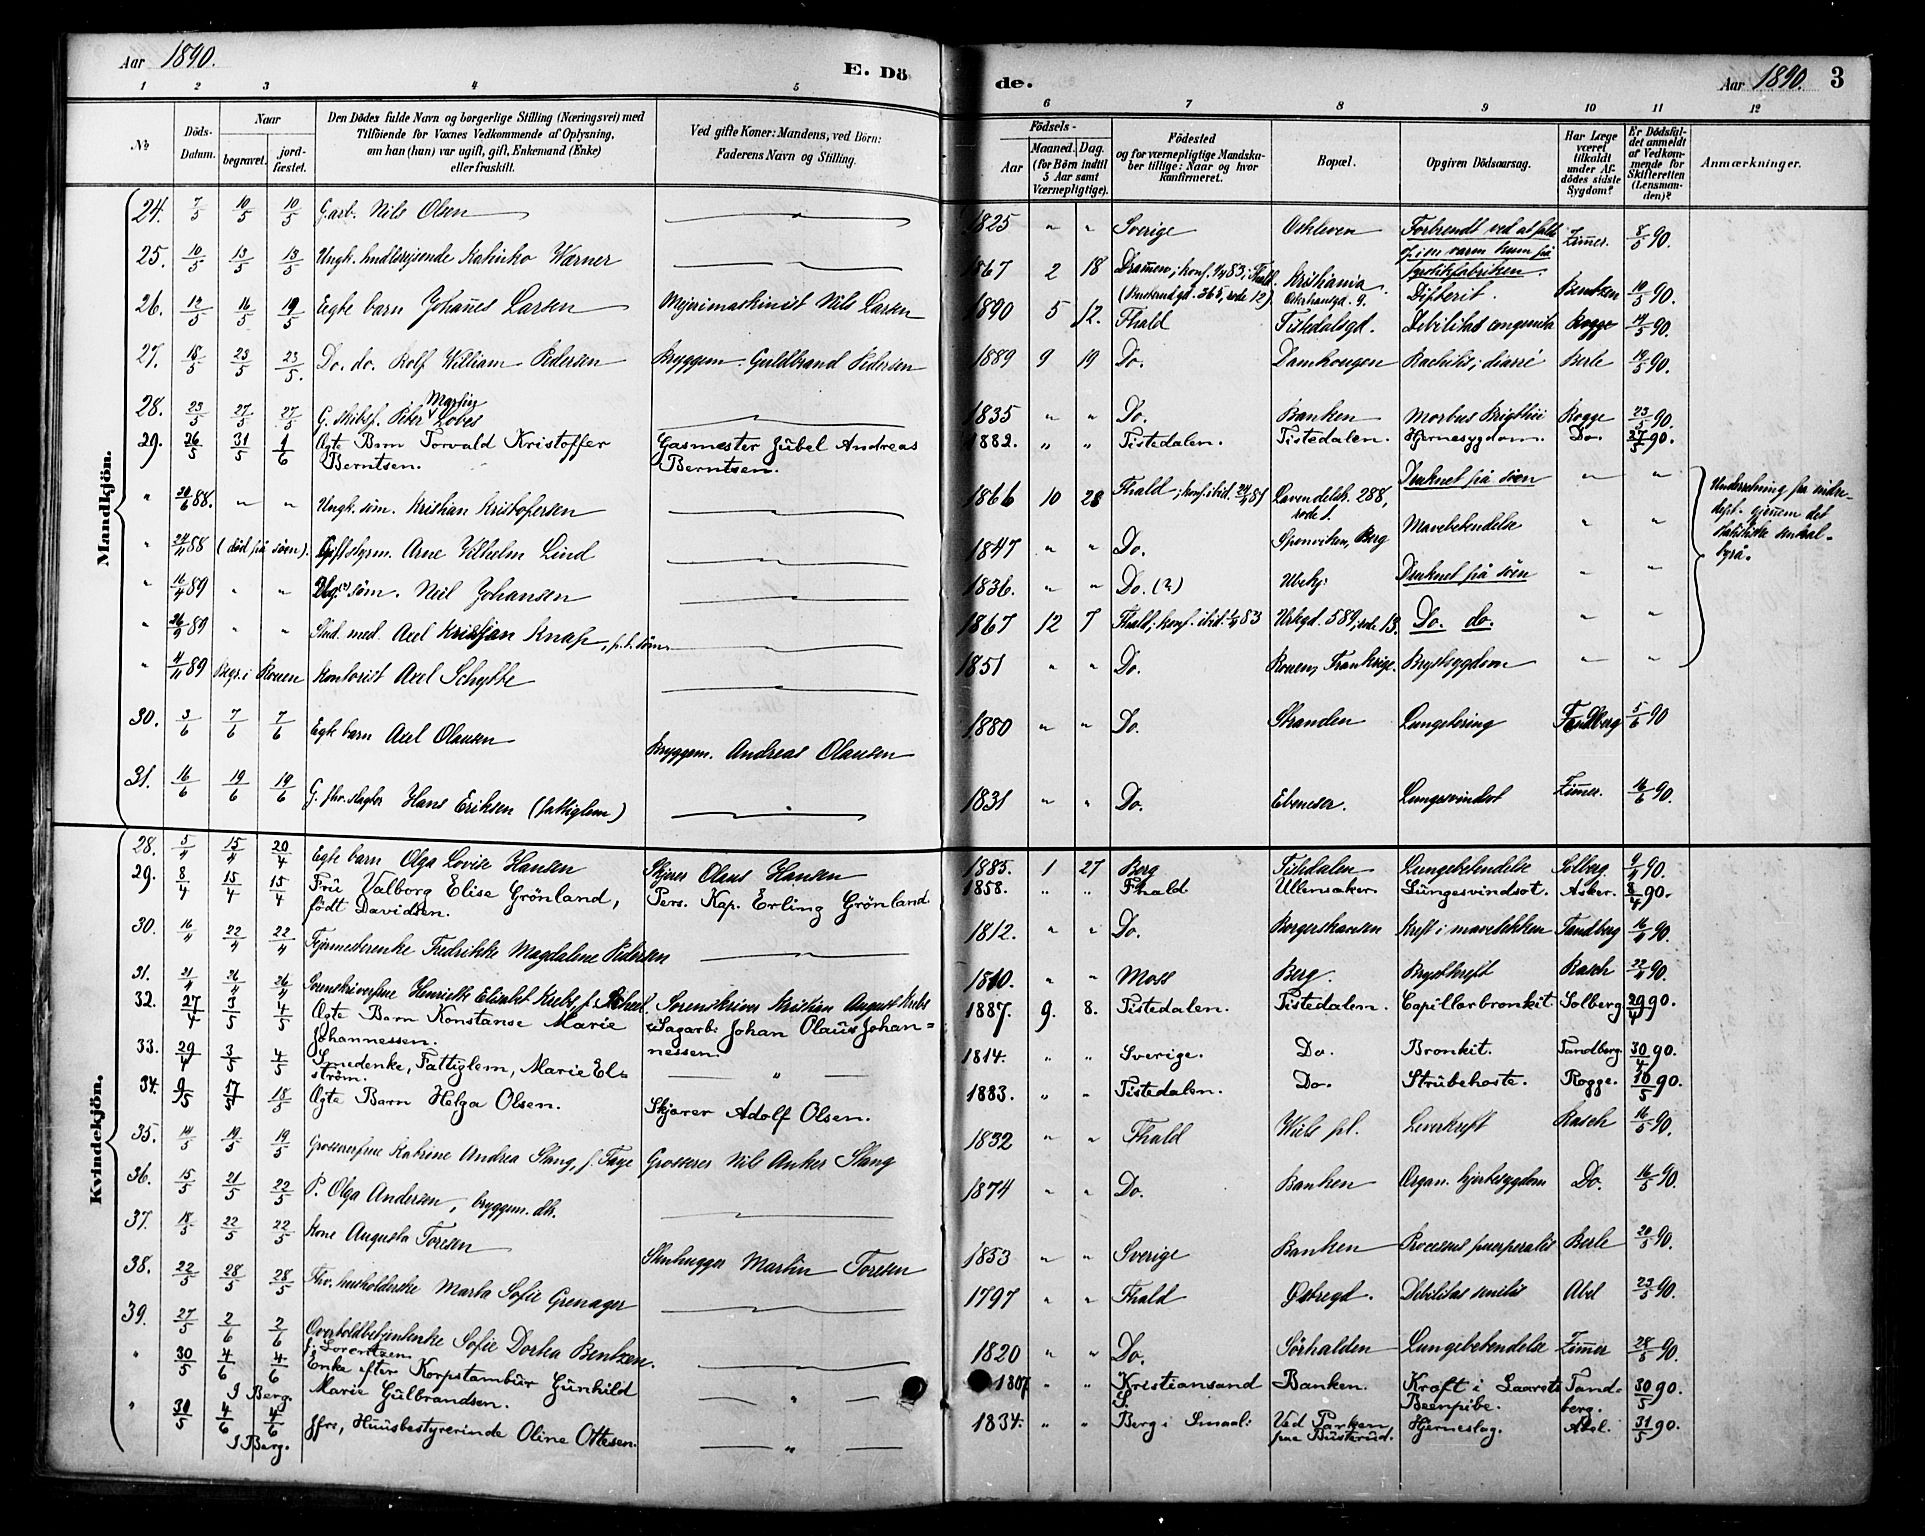 Aar 1890.
E. Dö
de.
Aar 1890. 3
1 2 3 4 5 6 7 8 9 10 11 12
No
Döds-Datum.
Naar
begravet.
jordfæstet.
Den Dödes fulde Navn og borgerlige Stilling (Næringsvei) med
Tilföiende for Voxnes Vedkommende af Oplysning,
om han (hun) var ugift, gift, Enkemand (Enke)
eller fraskilt.
Ved gifte Koner: Mandens, ved Börn:
Faderens Navn og Stilling.
Födsels-
Aar
Maaned. Dag.
(for Börn indtil
5 Aar samt
Værnepligtige).
Födested
og for værnepligtige Mandska-
ber tillige: Naar og hvor
konfirmeret.
Bopæl.
Opgiven Dödsaarsag.
Har Læge
været
tilkaldt
under Af-
dödes sidste
Sygdom?
Er Dödsfal-
det anmeldt
af Vedkom-
mende for
Skifteretten
(Lensman-
den)?
Anmærkninger.
Mandkjön.
24. 7/5 10/5 10/5 Garb. Nils Olsen 1825 " " Sverige Oskleven Forbrendt ved at falde 8/5 90.
Zimmer.
25. 10/5 13/5 13/5 Ungk. Werner 1867 2 18 Drammen; konf. 83 i Fhald. Kristiania Difterit. Bentzen 10/5 90.
26. 12/5 16/5 19/5 Egte barn Johannes Larsen Meierimaskinist Nils Larsen 1890 5 12. Fhald Tistedalsgd. Debilitas congenita Rogge 14/5 90.
27. 18/5 23/5 23/5. Do. do. Rolf William Pedersen Bryggem. Guldbrand Pedersen 1889 9 19 Do. Damhougen Rachitis; diarré Berle 19/5 90.
28. 23/5 27/5 27/5 G. skibsf. Peter Martin Lobes 1835 " " Do. Banken Morbus Brigthii Rogge 23/5 90.
29. 26/5 31/5 1/6 Ægte Barn Torvald Kristoffer Gasmester Jubel Andreas 1882. " " Tistedalen. Tistedalen. Hjernesygdom. Do. 27/5 90.
Berntsen. Berntsen.
" 88. " " Ungk. söm. Kristian Kristofersen 1866 10 28 Fhald; konf. ibid. 81 Lavendelsk. 288, rode 1. Druknet på söen " "
Underretning fra indre-
dept. gjennem det
statistiske central-
byrå.
" 24/11 88 (död på söen). styrm. Arne Vilhelm Lind 1847 " " Do. Sponviken, Berg Mavebetendelse " "
" 16/4 89 " " söm. Neil Johansen 1836. " " Do. (?) Ubekj. Druknet på söen " "
" 26/9 89 " " Stud. med. Axel Kristjan Knap, p.t. söm. 1867 12 7 Fhald; konf. ibid. 83 589, rode 13. Do. do. " "
" 4/11 89 Begr. i Rouen Kontorist Axel Schytte 1851 " " Do. Rouen, Frankrige. Brystsygdom " "
30. 3/6 7/6 7/6 Egte barn Axel Olausen Bryggem. Andreas Olausen 1880 " " Do. Stranden Lungetæring Tandberg 5/6 90
31. 16/6 19/6 19/6 G. fhv. slagter Hans Eriksen (fattiglem) " 1831 " " Do. Ebeneser. Lungesvindsot Zimmer. 16/6 90.
Kvindekjön.
28. 5/4 15/4 20/4 Egte barn Olga Lovise Hansen Skjærer Olaus Hansen 1885. 1 27 Berg Tistedalen Lungebetendelse Solberg 9/4 90.
29. 8/4 15/4 15/4 Frü Valborg Elise Grönland, Pers. Kap. Erling Grönland 1858. " " Fhald Ullensaker. Lungesvindsot. Asker. 8/4 90.
födt Davidsen.
30. 16/4 22/4 22/4 Fyrmesterenke Fredrikke Magdalene Pedersen 1812. " " Do. Borgerskansen Kreft i mavesekken Tandberg 16/4 90.
31. 21/4 26/4 26/4 Sorenskriverfrue Henriette Elisabet Krebs f. Sorenskriver Kristian August Krebs 1810 " " Moss Berg. Brystkreft Rasch 22/4 90.
32. 27/4 3/5 4/5 Ægte Barn Konstanse Marie Sagarb. Johan Olaus Johan= 1887. 9. 8. Tistedalen. Tistedalen. Capillarbronkit. Solberg 29/4 90.
Johannessen. nessen.
33. 29/4 3/5 4/5 Smedenke, Fattiglem, Marie El= " 1814. " " Sverige. Do. Bronkit. Tandberg. 30/4 90.
ström.
34. 9/5 17/5 18/5 Ægte Barn Helga Olsen. Skjærer Adolf Olsen. 1883. " " Tistedalen. Do. Strübehoste. Rogge. 10/5 90.
35. 14/5 19/5 19/5 Grossererfrue Katrine Andrea Stang, f. Faye Grosserer Nils Anker Stang 1832 " " Fhald Wiels pl. Leverkreft Rasch 16/5 90.
36. 15/5 21/5 22/5 P. Olga Andersen, bryggem. dtr. 1874 " " Do. Banken Organ. hjertesygdom Do. 16/5 90.
37. 18/5 22/5 22/5 Kone Augusta Toresen Stenhugger Martin Toresen 1853 " " Sverige Banken Processus puerperalis Berle 20/5 90.
38. 22/5 28/5 28/5 Fhv. husholderske Marta Sofie Grenager 1797 " " Fhald Østregd. Debilitas senilis Abel 23/5 90.
39. 27/5 2/6 2/6 Overtoldbetjentenke Sofie Dortea Bentzen. 1820 " " Do. Sörhalden Lungebetendelse Zimmer 28/5 90.
f. Lorentzen
" 30/5 4/6 4/6 Enke efter Korpstambür Günhild " 1807 " " Kristiansand Banken. Kræft i Laarets Tand- 30/5 90.
I Berg. Marie Gülbrandsen. S. Beenpibe. berg.
" 30/5 4/6 4/6 Jfrü, Huusbestyrerinde Oline Ottesen. " 1834. " " Berg i Smaal: Ved Parken Hjerneslag. Abel. 31/5 90.
I Berg.